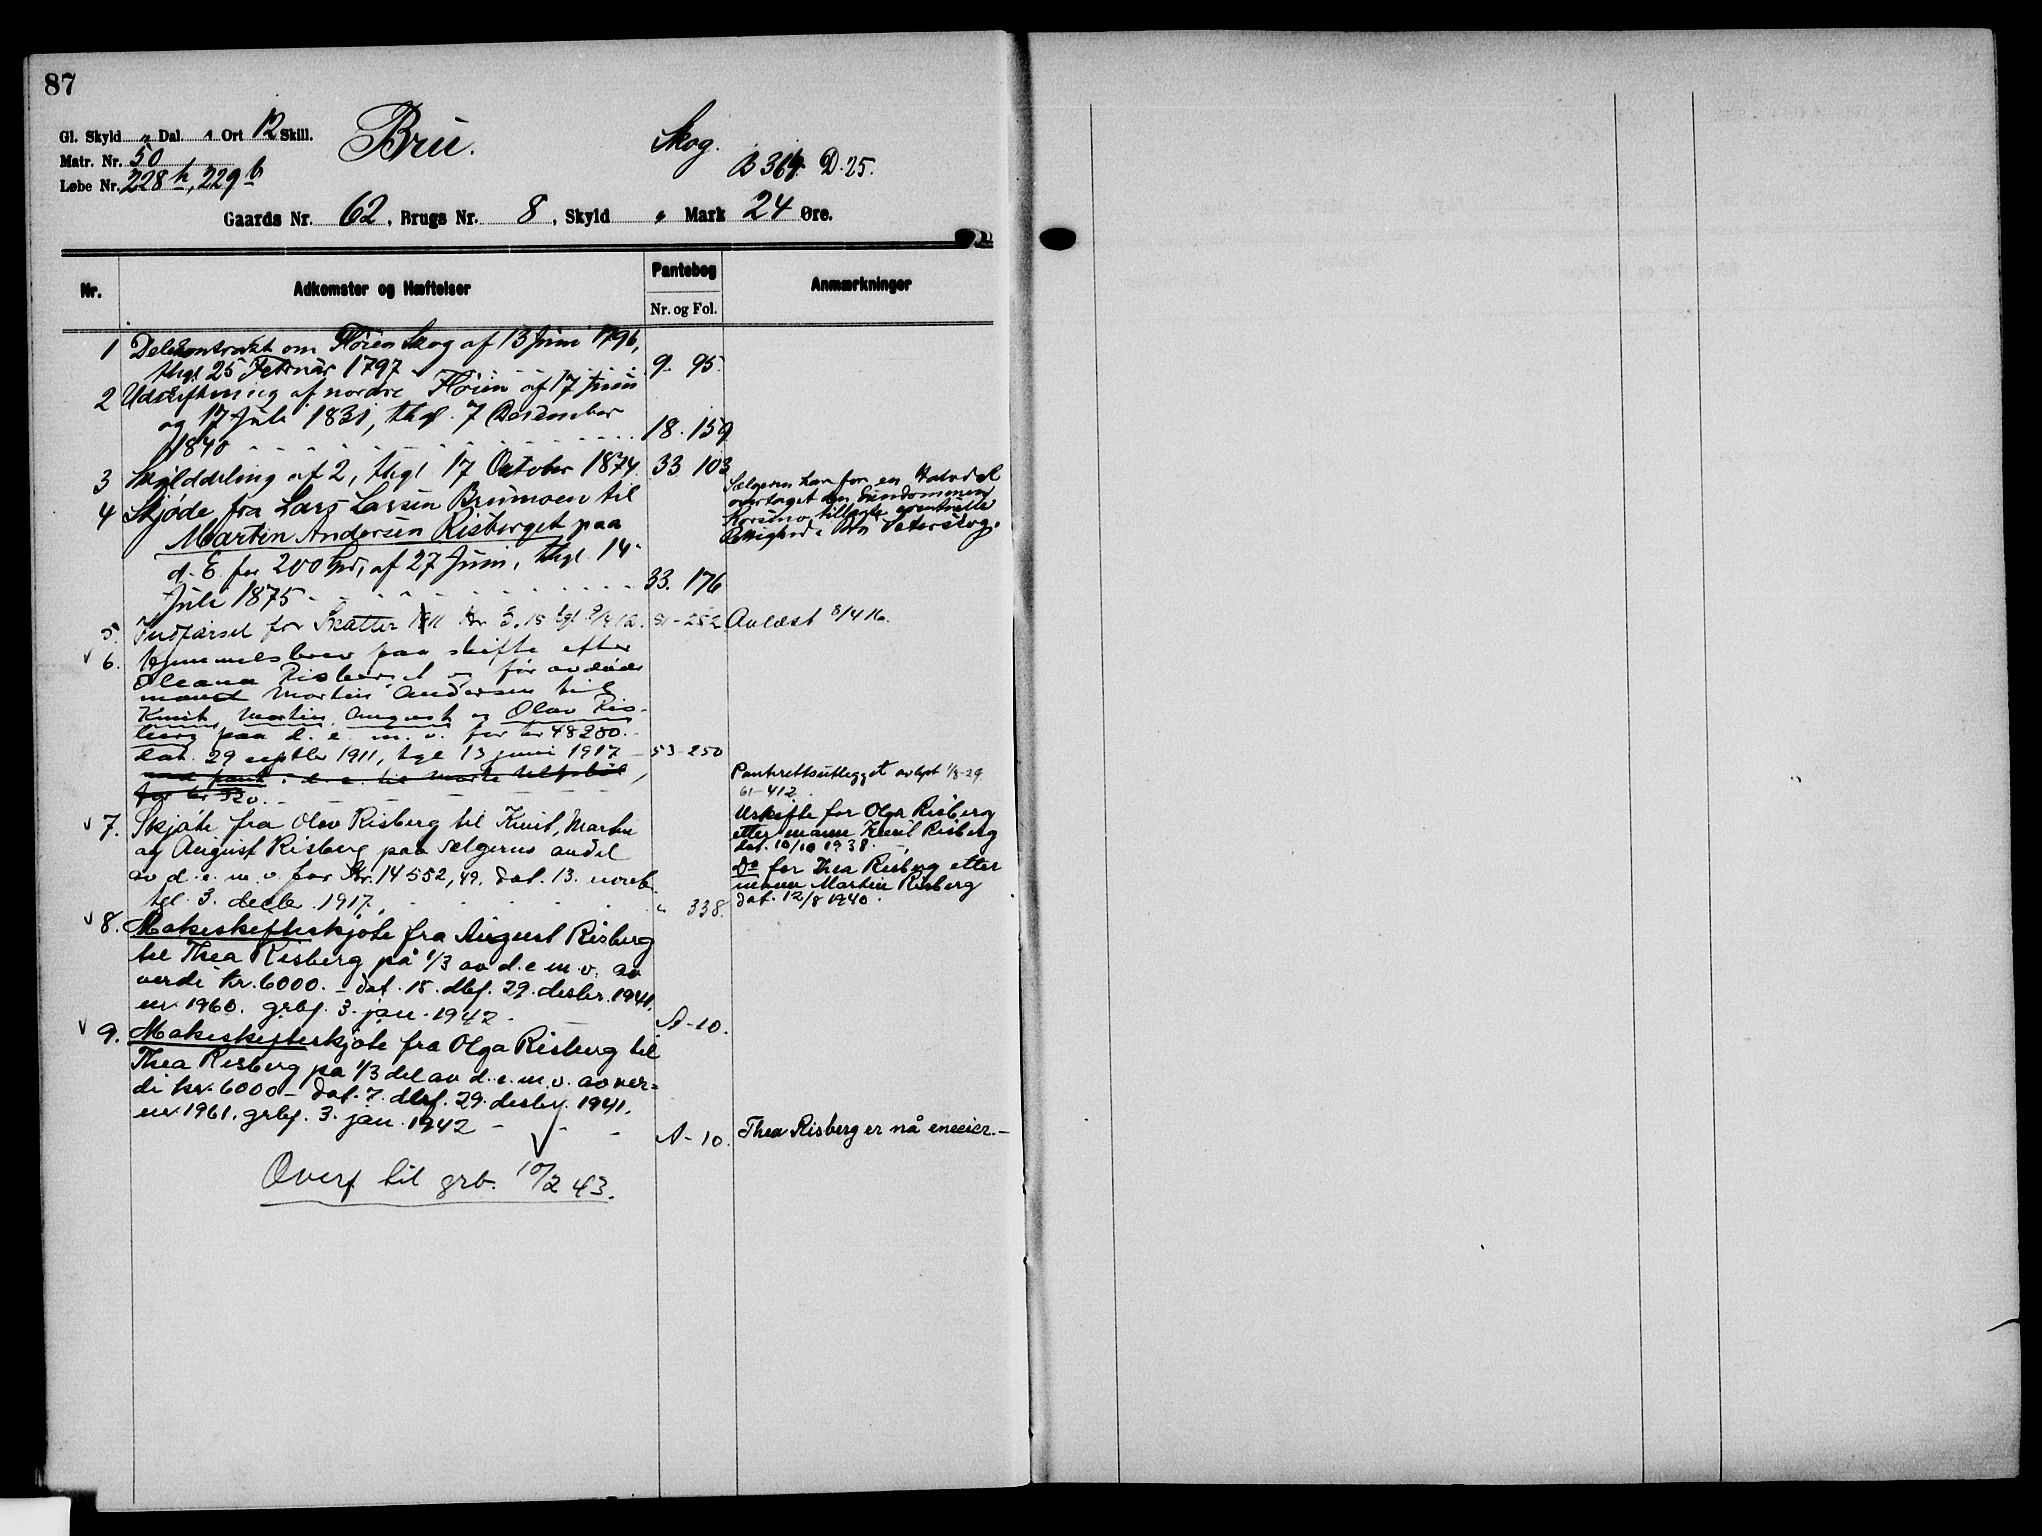 87
Gl. Skyld " Dal. 1 Ort 12 Skill.
Matr. Nr. 50
Løbe Nr. 228 h, 229 b
Bru. Skog.
B 364. D. 25.
Gaards Nr. 62, Brugs Nr. 8, Skyld " Mark 24 Øre.
Nr. Adkomster og Hæftelser Pantebog Anmærkninger
Nr. og Fol.
1 Delekontrakt om Fløien Skog af 13 Juni 1796,
thgl. 25 Februar 1797 9. 95.
2 Udskiftning af nordre Fløien af 17 Juni
og 17 Juli 1831, thgl. 7 December
1840 18. 159
3 Skylddeling af 2, thgl 17 October 1874. 33 103
4 Skjøde fra Lars Larsen Brumoen til
Martin Andersen Risberget paa
d. E. for 200 Spd, af 27 Juni, thgl. 14
Juli 1875 33. 176
Sælgeren har for en Halvdel
overtaget den Eiendommen
Korsmo tillagte eventuelle
Rettighed i Bru Sæterskog.
5. Indførsel for Skatter 1911 Kr 3.15 tgl 9/4 12. 51-252 Avlæst 8/4 16.
6. Hjemmelsbrev paa skifte efter
Oleana Risberget og før avdøde
mand Martin Andersen til
Knut, Martin, August og Olav Ris-
berg paa d. e. m. v. for kr 48280.-
dat. 29 septbr 1911, tgl 13 juni 1917 53-250
med pant i d. e. til Marte
for kr 520.
Panterettsutlegget avlyst 1/8-29
61-412
7. Skjøte fra Olav Risberg til Knut, Martin
og August Risberg paa sælgerens andel
av d. e. m. v. for Kr. 14552,49. Dat. 13. novb.
tgl. 3. decbr. 1917. " 338.
Uskifte for Olga Risberg
etter mann Knut Risberg
dat. 10/10 1938.
Do for Thea Risberg etter
mann Martin Risberg
dat. 12/8 1940.
8. Makeskifteskjøte fra August Risberg
til Thea Risberg på 1/3 av d. e m. v. av
verdi kr. 6000. - dat. 15. dbf. 29. desbr. 1941.
nr. 1960. grbf. 3. jan. 1942 A-10.
9. Makeskifteskjøte fra Olga Risberg til
Thea Risberg på 1/3 del av d. e. m. v. av ver-
di kr. 6000 - dat. 7. dbf. 29. desbr. 1941.
nr. 1961. grbf. 3. jan. 1942 A-10. Thea Risberg er nå eneeier.-
Overf til grb. 10/2 43.